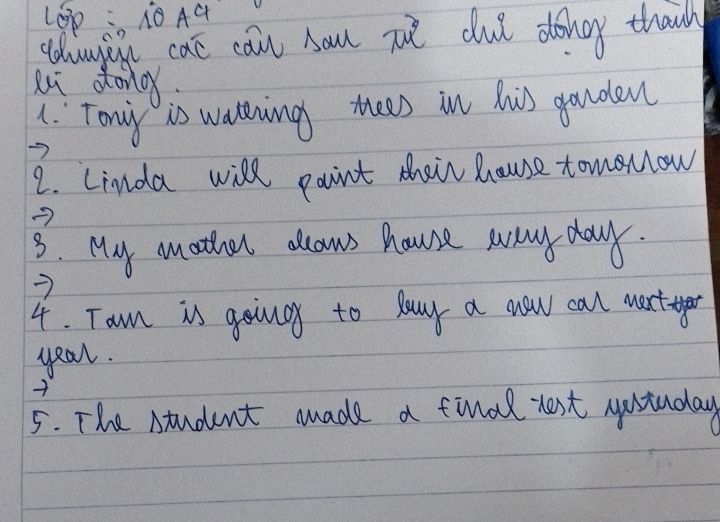 Lớp : 10 A4
Chuyển các câu sau từ chủ động thành
bị động.
1. Tony is watering trees in his garden
→
2. Linda will paint their house tomorrow
→
3. My mother cleans house every day.
→
4. Tam is going to buy a new car next
year.
→
5. The student made a final test yesterday